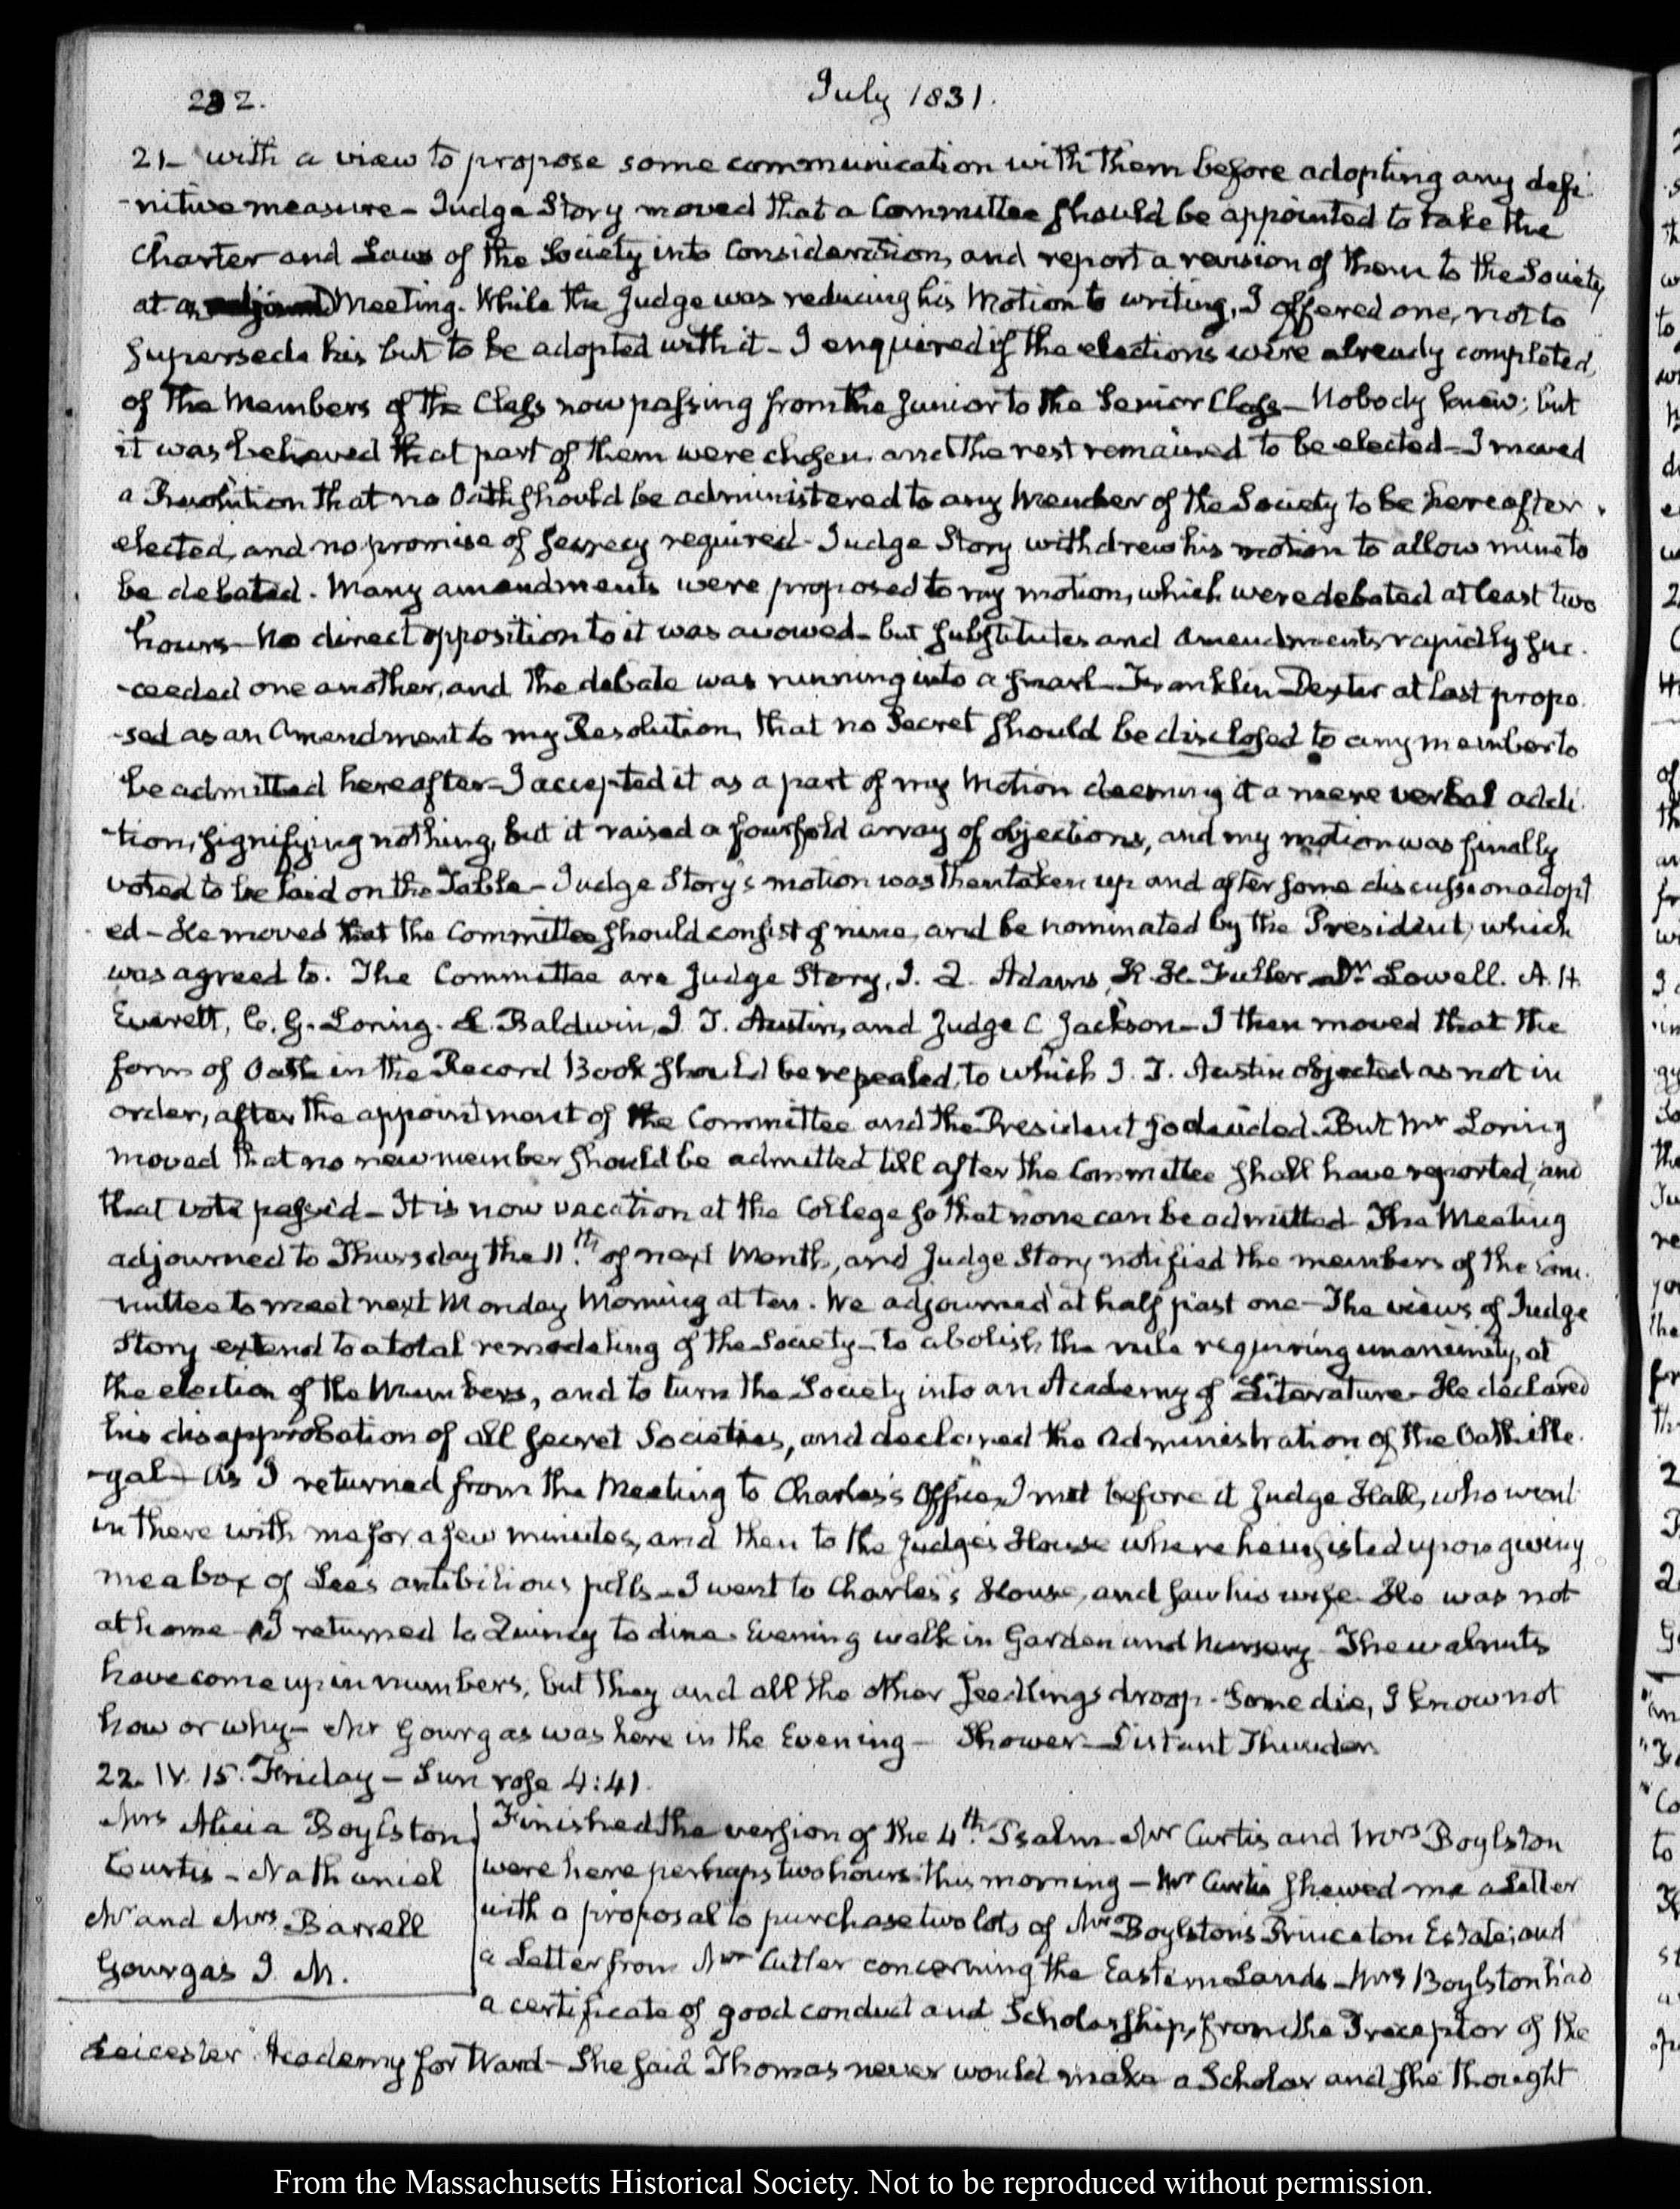 232.
July 1831.
21— with a view to propose some communication with them before adopting any defi-
-nitive measure — Judge Story moved that a Committee should be appointed to take the
Charter and Laws of the Society into Consideration, and report a revision of them to the Society
at a Meeting. While the Judge was reducing his Motion to writing, I offered one, not to
supersede his but to be adopted with it — I enquired if the elections were already completed,
of the Members of the Class now passing from the Junior to the Senior Class — Nobody knew; but
it was believed that part of them were chosen and the rest remained to be elected — I moved
a Resolution that no Oath should be administered to any Member of the Society to be hereafter
elected, and no promise of secrecy required — Judge Story withdrew his motion to allow mine to
be debated. Many amendments were proposed to my motion, which were debated at least two
hours — No direct opposition to it was avowed — but substitutes and Amendments rapidly suc-
-ceeded one another, and the debate was running into a snarl — Franklin Dexter at last propo-
-sed as an Amendment to my Resolution, that no Secret should be disclosed to any member to
be admitted hereafter — I accepted it as a part of my Motion deeming it a mere verbal addi-
-tion, signifying nothing, but it raised a fourfold array of objections, and my motion was finally
voted to be laid on the Table — Judge Story's motion was then taken up and after some discussion adopt
ed — He moved that the Committee should consist of nine, and be nominated by the President, which
was agreed to. The Committee are Judge Story, J. Q. Adams, Fuller Dr Lowell. A. H.
Everett, C. G. Loring. L. Baldwin, J. T. Austin, and Judge C Jackson — I then moved that the
form of Oath in the Record Book should be repealed, to which J. T. Austin objected as not in
order, after the appointment of the Committee and the President so decided. But Mr Loring
moved that no new member should be admitted till after the Committee shall have reported, and
that vote passed — It is now vacation at the College so that none can be admitted — The Meeting
adjourned to Thursday the 11th of next Month, and Judge Story notified the members of the Com-
-mittee to meet next Monday Morning at ten. We adjourned at half past one — The views of Judge
Story extend to a total remodeling of the Society — to abolish the rule requiring unanimity, at
the election of the Members, and to turn the Society into an Academy of Literature — He declared
his disapprobation of all secret Societies, and declared the Administration of the Oath ille-
-gal — As I returned from the Meeting to Charles's Office, I met before it Judge Hall, who went
in there with me for a few minutes, and then to the Judge's House where he insisted upon giving
me a box of Lee's antibilious pills — I went to Charles's House, and saw his wife. He was not
at home — I returned to Quincy to dine. Evening walk in Garden and Nursery. The walnuts
have come up in numbers, but they and all the other seedlings droop. Some die, I know not
how or why — Mr Gourgas was here in the Evening — Shower — Distant Thunder.
22. IV. 15. Friday — Sun rose 4:41.
Mrs Alicia Boylston
Curtis — Nathaniel
Mr and Mrs Barrell
Gourgas J. M.
Finished the version of the 4th Psalm — Mr Curtis and Mrs Boylston
were here perhaps two hours this morning — Mr Curtis shewed me a Letter
with a proposal to purchase two lots of Mrs Boylston's Princeton Estate; and
a Letter from Mr Cutler concerning the Eastern Lands — Mrs Boylston had
a certificate of good conduct and Scholarship, from the Preceptor of the
Leicester Academy for Ward — She said Thomas never would make a Scholar and she thought
From the Massachusetts Historical Society. Not to be reproduced without permission.